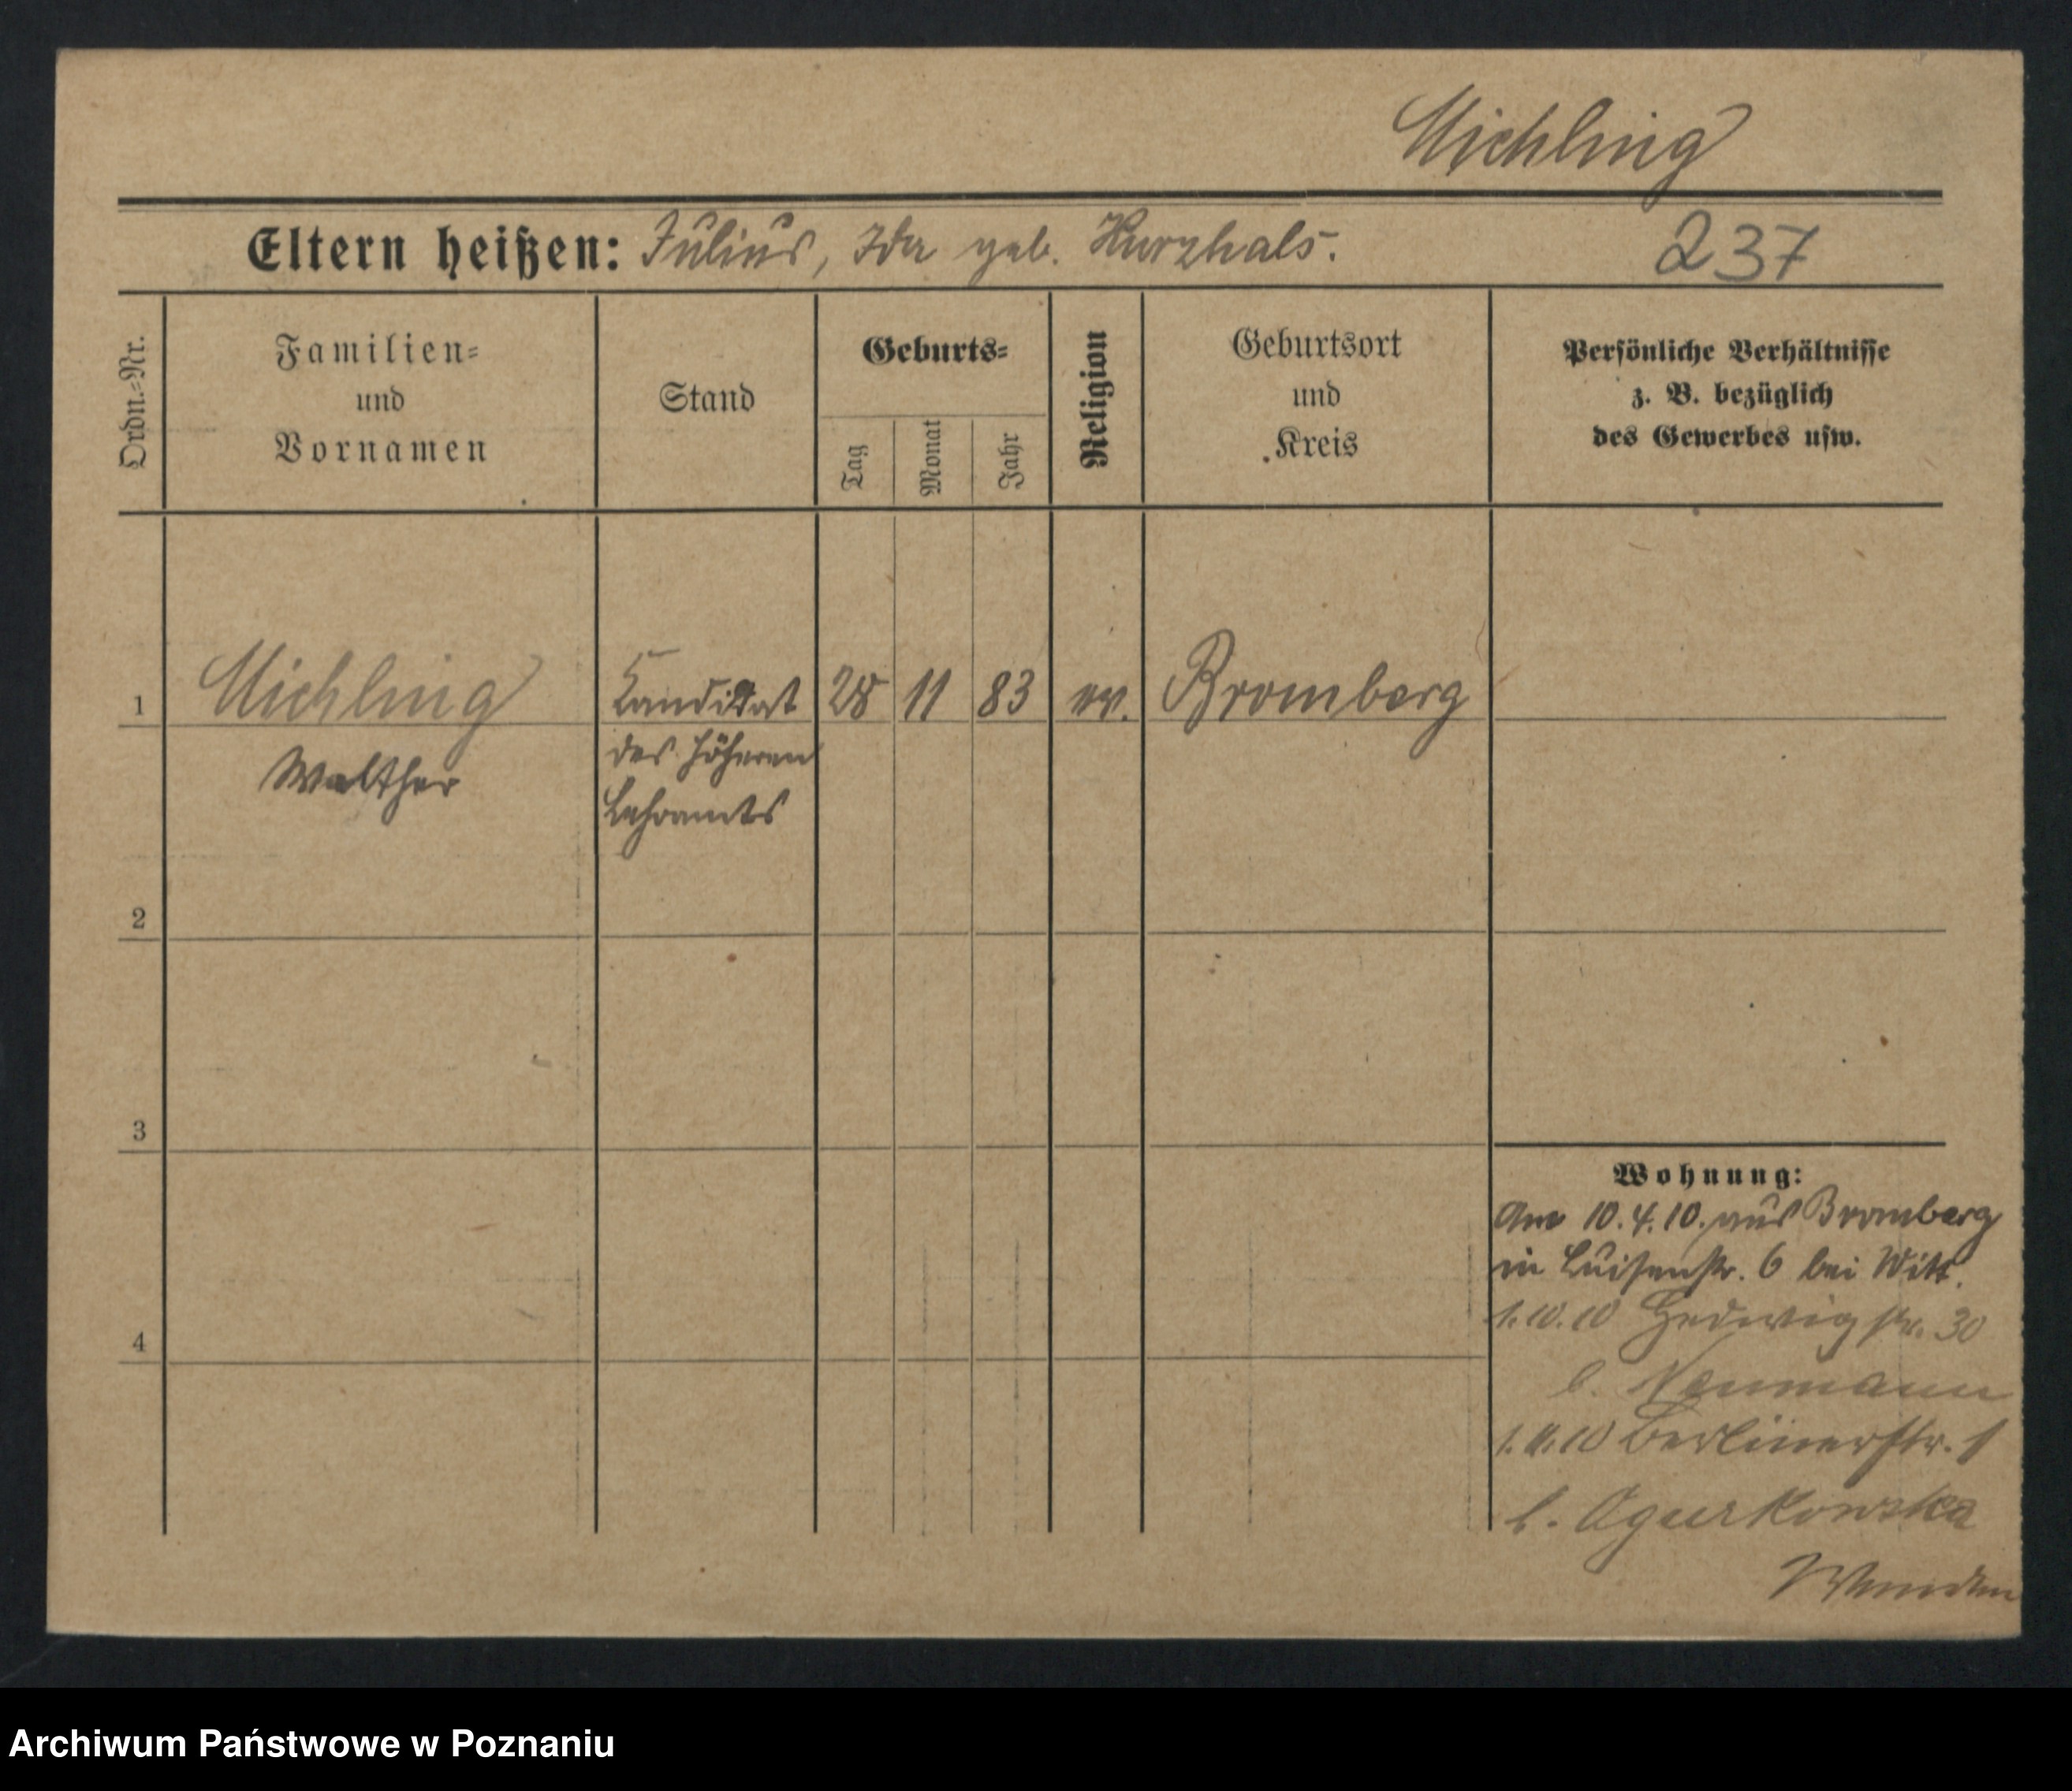 Michling
Eltern heißen: Julius, Ida geb. Kurzhals.
237
Ordn.=Nr.
Familien=
und
Vornamen
Stand
Geburts=
Tag
Monat
Jahr
Religion
Geburtsort
und
Kreis
Persönliche Verhältnisse
z. B. bezüglich
des Gewerbes usw.
1 Michling Kandidat 28 11 83 ev. Bromberg
Walther des höheren
Lehramts
2
3
4
Wohnung:
Am 10.4.10. aus Bromberg
in Luisenstr. 6 bei Witt.
1.10.10 Hedwigstr. 30
b. Neumann
1.11.10 Berlinerstr. 1
b. Ogurkowska
Wenden
Archiwum Państwowe w Poznaniu